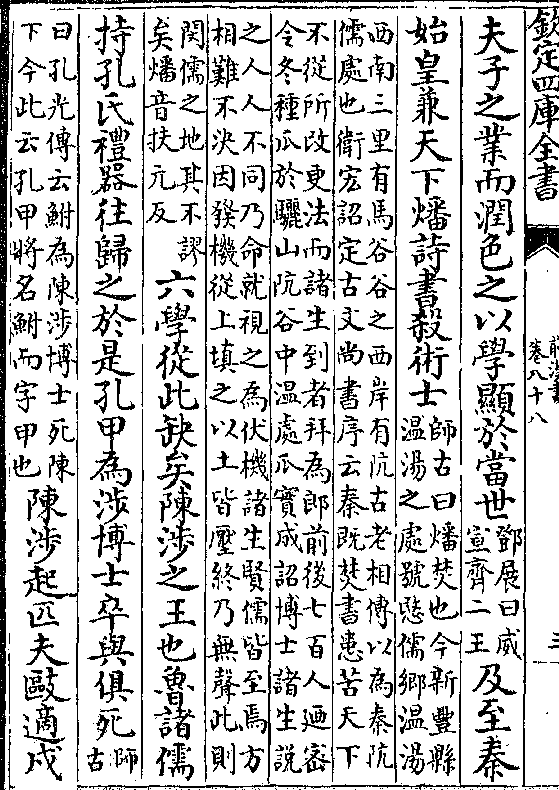 欽定四庫全書
卷八十八
夫子之業而潤色之以學顯於當世
鄧展曰威
宣齊二王
及至秦
始皇兼天下燔詩書殺術士
師古曰燔焚也今新豐縣
温湯之處號愍儒鄉温湯
西南三里有馬谷谷之西岸有阬古老相傳以為秦阬
儒處也衛宏詔定古文尚書序云秦既焚書患苦天下
不從所改更法而諸生到者拜為郎前後七百人廼密
令冬種瓜於驪山阬谷中温處瓜實成詔博士諸生説
之人人不同乃命就視之為伏機諸生賢儒皆至焉方
相難不決因發機從上填之以土皆壓終乃無聲此則
閔儒之地其不謬
矣燔音扶元反
六學從此缺矣陳涉之王也魯諸儒
持孔氏禮器往歸之於是孔甲為涉博士卒與俱死
師
古
曰孔光傳云鮒為陳涉博士死陳
下今此云孔甲將名鮒而字甲也
陳涉起匹夫敺適戍